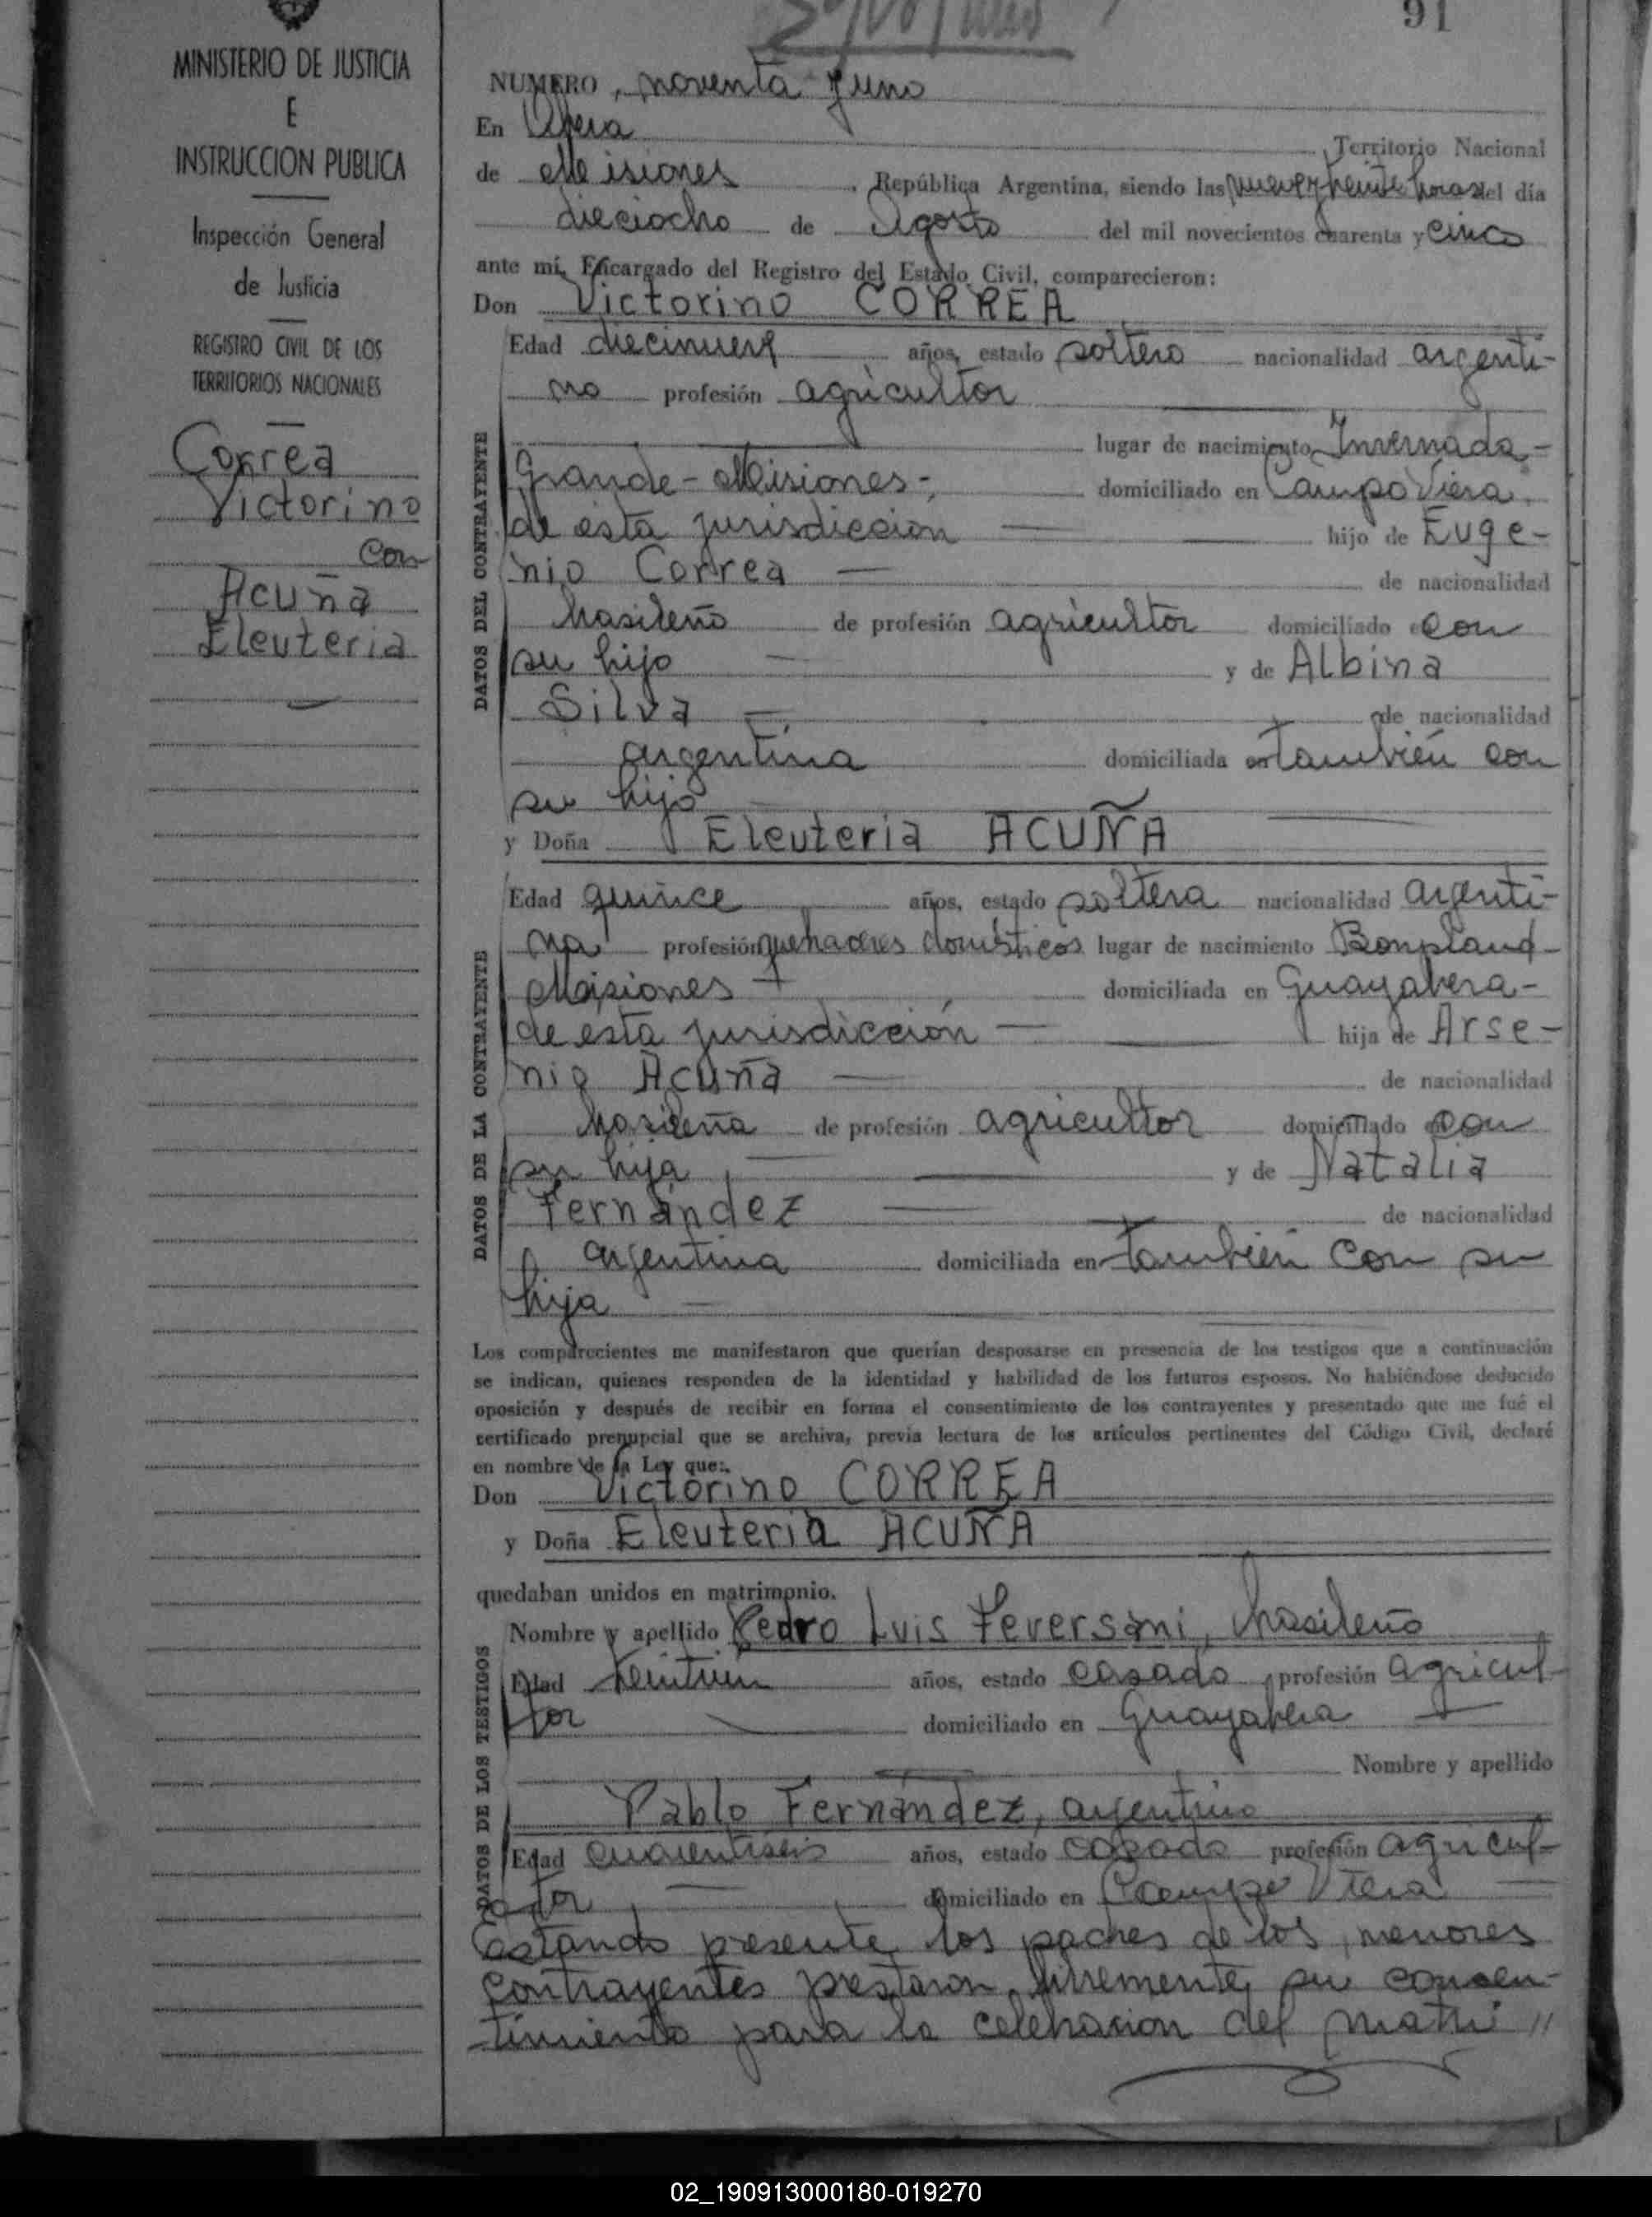 MINISTERIO DE JUSTICIA
E
INSTRUCCION PUBLICA
Inspección General
de Justicia
REGISTRO CIVIL DE LOS
TERRITORIOS NACIONALES
Correa
Victorino
con
Acuña
Eleuteria
91
NUMERO, noventa y uno
En Obera Territorio Nacional
de Misiones, República Argentina, siendo las nueve y veinte horas del día
dieciocho de Agosto del mil novecientos cuarenta y cinco
ante mí, Encargado del Registro del Estado Civil, comparecieron:
Don Victorino CORREA
DATOS DEL CONTRAYENTE
Edad diecinueve años, estado soltero nacionalidad argenti-
no profesión agricultor
lugar de nacimiento Invernada-
Grande-Misiones-, domiciliado en Campo Viera,
de esta jurisdicción hijo de Euge-
nio Correa de nacionalidad
brasileño de profesión agricultor domiciliado con
su hijo y de Albina
Silva de nacionalidad
argentina domiciliada en también con
su hijo
y Doña Eleuteria ACUÑA
DATOS DE LA CONTRAYENTE
Edad quince años, estado soltera nacionalidad argenti-
na profesión quehaceres domésticos lugar de nacimiento Bonpland-
Misiones domiciliada en Guayabera-
de esta jurisdicción hija de Arse-
nio Acuña de nacionalidad
brasileña de profesión agricultor domiciliado con
su hija y de Natalia
Fernández de nacionalidad
argentina domiciliada en también con su
hija
Los comparecientes me manifestaron que querían desposarse en presencia de los testigos que a continuación
se indican, quienes responden de la identidad y habilidad de los futuros esposos. No habiéndose deducido
oposición y después de recibir en forma el consentimiento de los contrayentes y presentado que me fué el
certificado prenupcial que se archiva, previa lectura de los artículos pertinentes del Código Civil, declaré
en nombre de la Ley que:
Don Victorino CORREA
y Doña Eleuteria ACUÑA
quedaban unidos en matrimonio.
DATOS DE LOS TESTIGOS
Nombre y apellido Pedro Luis Feversani, brasileño
Edad años, estado casado, profesión agricul-
tor domiciliado en Guayabera
Nombre y apellido
Pablo Fernández, argentino
Edad cuarentiseis años, estado casado profesión agricul-
tor domiciliado en Campo Viera
Estando presente los padres de los menores
contrayentes prestaron libremente su consen-
timiento para la celebracion del matri //
02_190913000180-019270